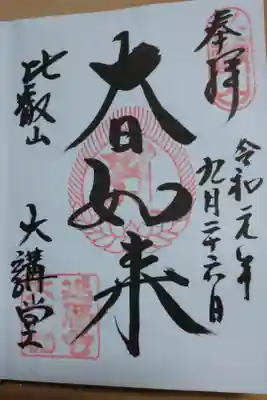 奉拝
令和元年
九月二十六日
大日如来
比叡山
大講堂